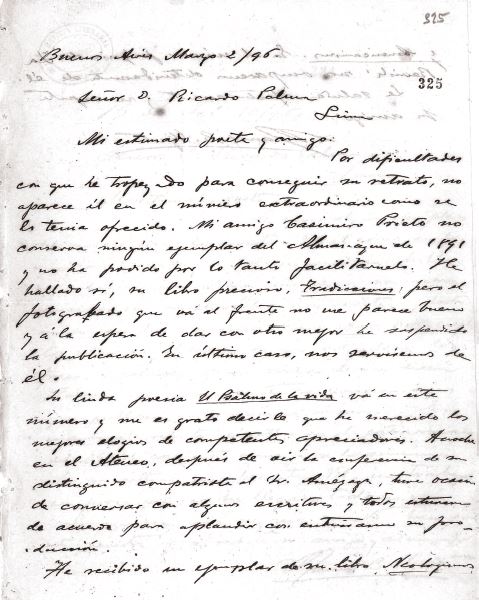 325
325
Buenos Aires Marzo 2/96
Señor D. Ricardo Palma
Lima
Mi estimado poeta y amigo:
Por dificultades
con que he tropezado para conseguir su retrato, no
aparece él en el número extraordinario como se
lo tenia ofrecido. Mi amigo Casimiro Prieto no
conserva ningún ejemplar del Almanaque de 1891
y no ha podido por lo tanto facilitármelo. He
hallado sí, su libro precioso, Tradiciones; pero el
fotograbado que vá al frente no me parece bueno
y á la espera de dar con otro mejor he suspendido
la publicación. En último caso, nos serviremos de
él.
Su linda poesia El Bautismo de la vida vá en este
número y me es grato decirle que ha merecido los
mejores elogios de competentes apreciadores. Anoche
en el Ateneo, después de oir la conferencia de su
distinguido compatriota el Dr. Amézaga, tuve ocasión
de conversar con algunos escritores y todos estuvieron
de acuerdo para aplaudir con entusiasmo su pro-
ducción.
He recibido un ejemplar de su libro Neologismos